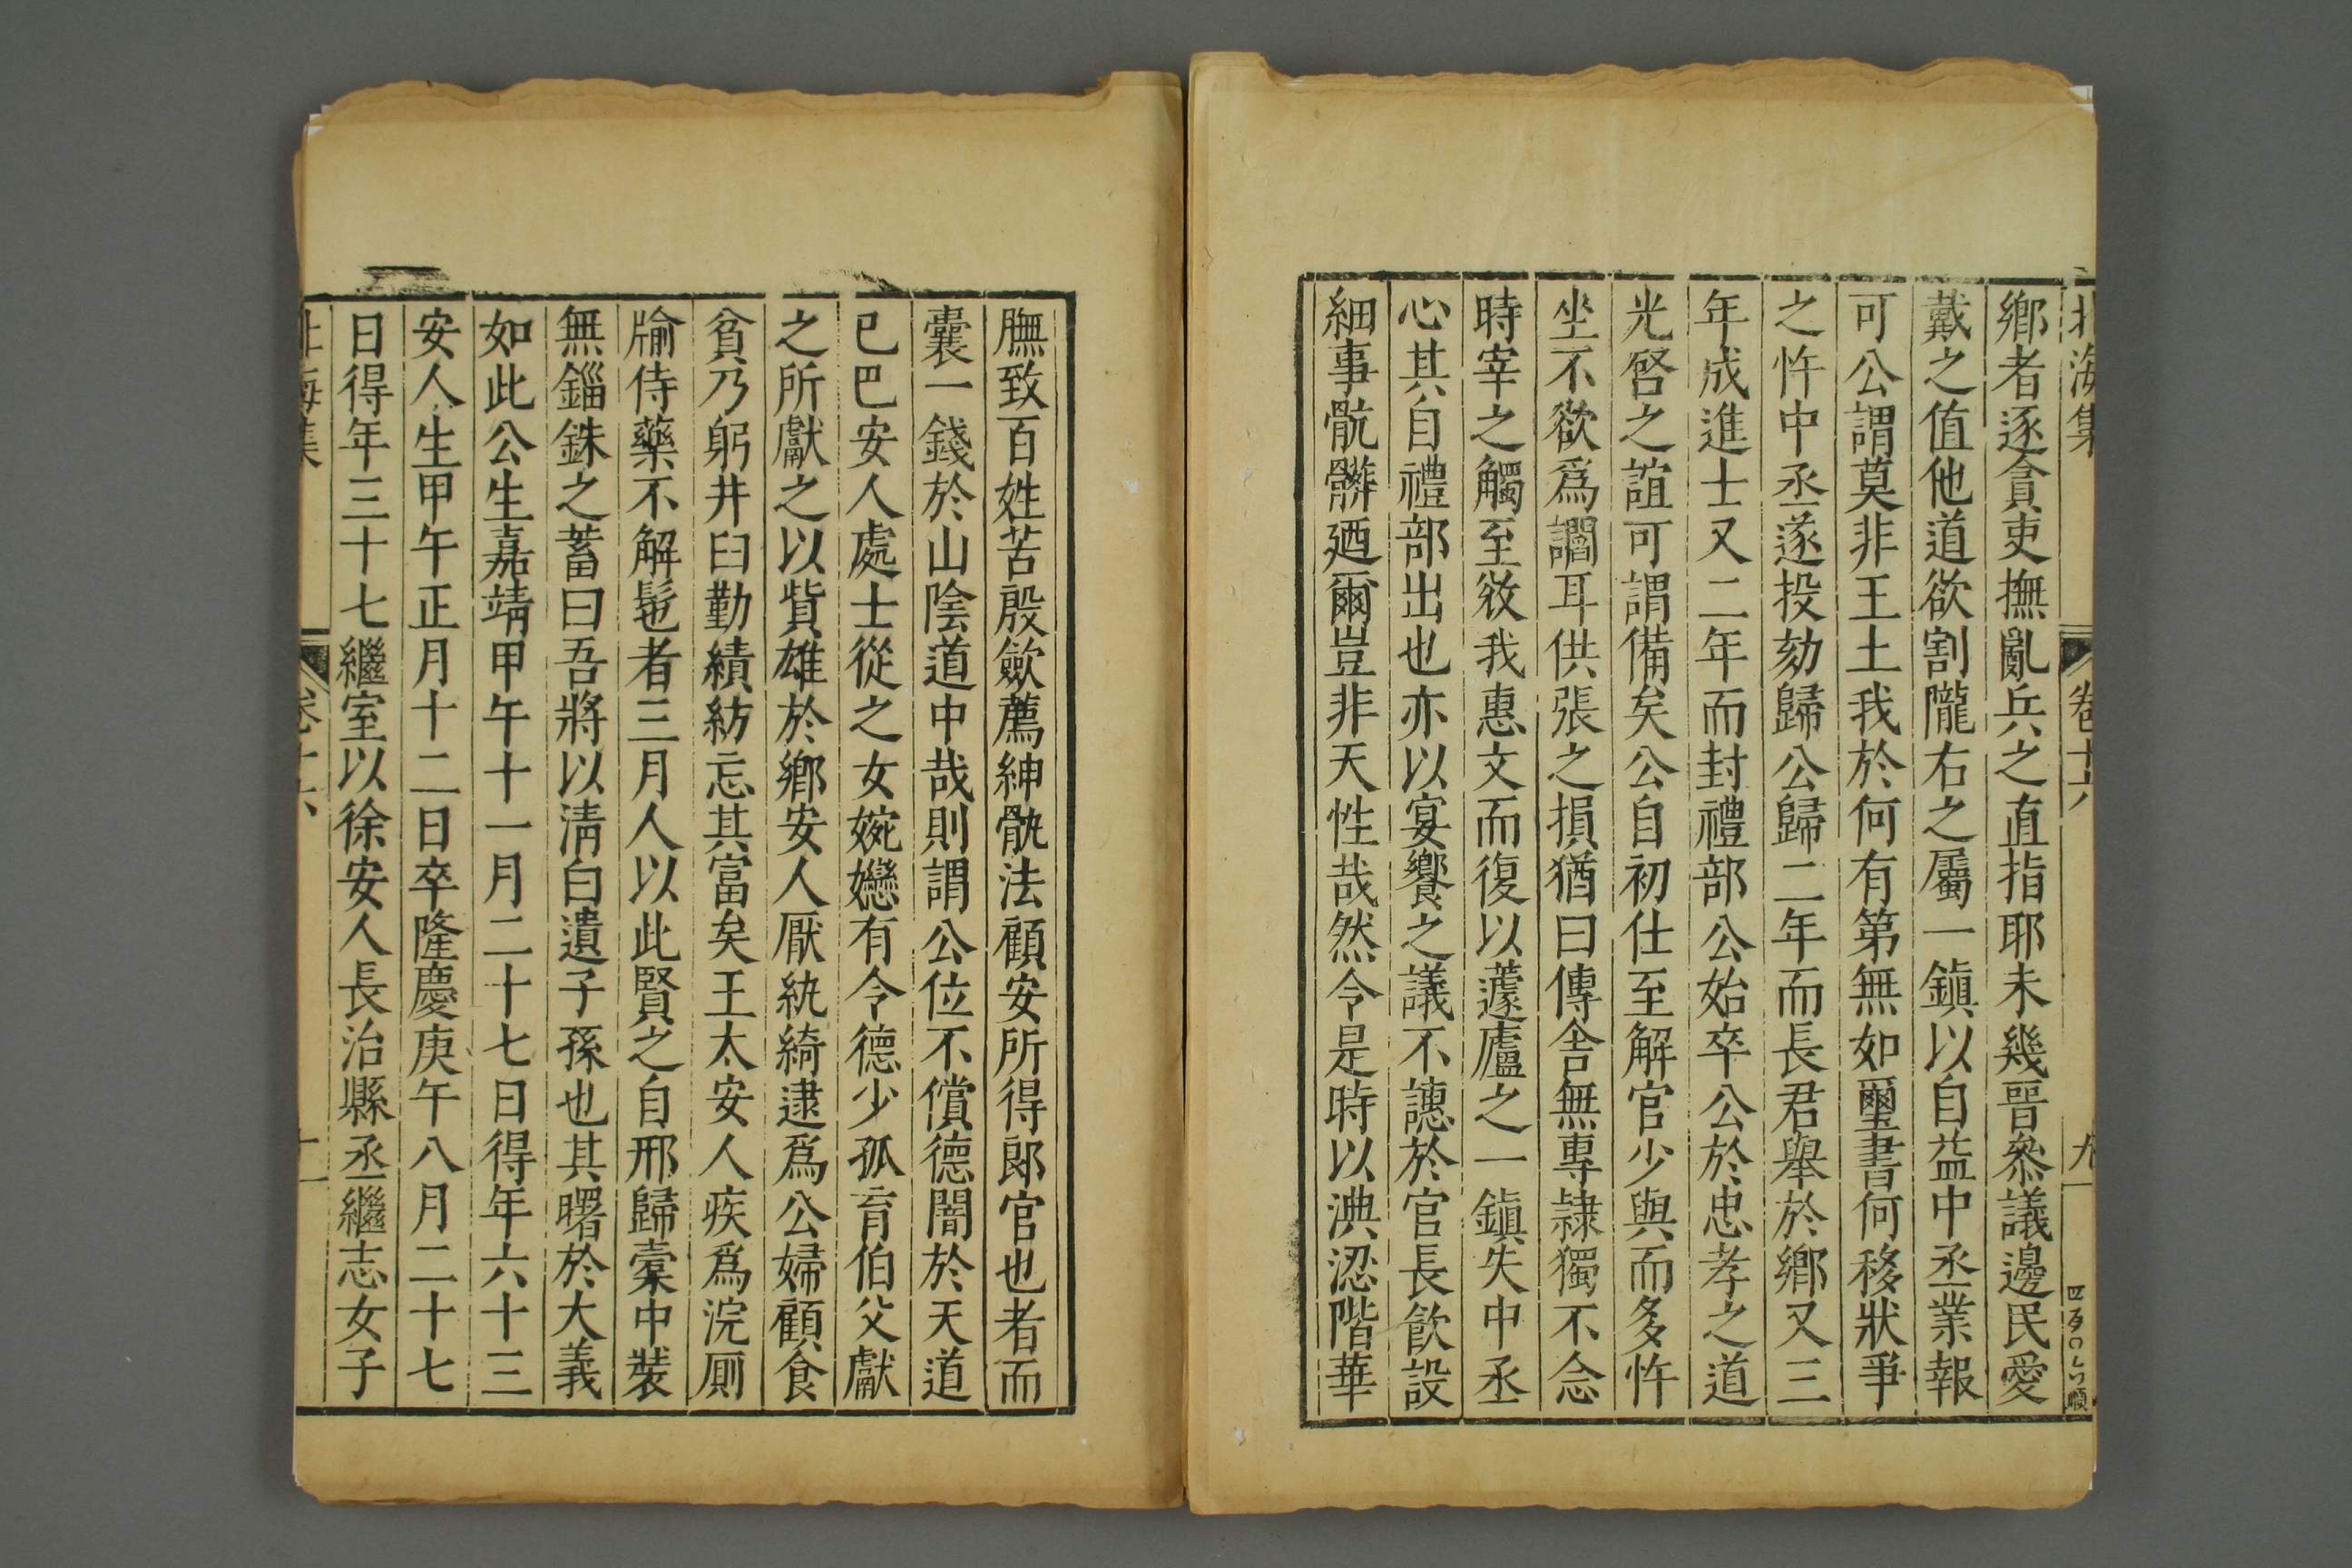 北海集 卷十六 九 四百〇六 順
鄉者逐貪吏撫亂兵之直指耶未幾晉叅議邊民愛
戴之值他道欲割隴右之屬一鎮以自益中丞業報
可公謂莫非王土我於何有第無如璽書何移狀爭
之忤中丞遂投劾歸公歸二年而長君舉於鄉又三
年成進士又二年而封禮部公始卒公於忠孝之道
光啓之誼可謂備矣公自初仕至解官少與而多忤
坐不欲爲讇耳供張之損猶曰傳舍無專隷獨不念
時宰之觸至敚我惠文而復以蘧廬之一鎮失中丞
心其自禮部出也亦以宴饗之議不譓於官長飮設
細事骯髒廼爾豈非天性哉然令是時以淟涊階華
膴致百姓苦殷歛薦紳骫法顧安所得郎官也者而
囊一錢於山陰道中哉則謂公位不償德闇於天道
已巴安人處士從之女婉戀有令德少孤育伯父獻
之所獻之以貲雄於鄉安人厭紈綺逮爲公婦顧食
貧乃躬井臼勤績紡忘其富矣王太安人疾爲浣厠
牏侍藥不解髢者三月人以此賢之自邢歸橐中裝
無錙銖之蓄曰吾將以淸白遺子孫也其曙於大義
如此公生嘉靖甲午十一月二十七日得年六十三
安人生甲午正月十二日卒隆慶庚午八月二十七
日得年三十七繼室以徐安人長治縣丞繼志女子
北海集 卷十六 十一